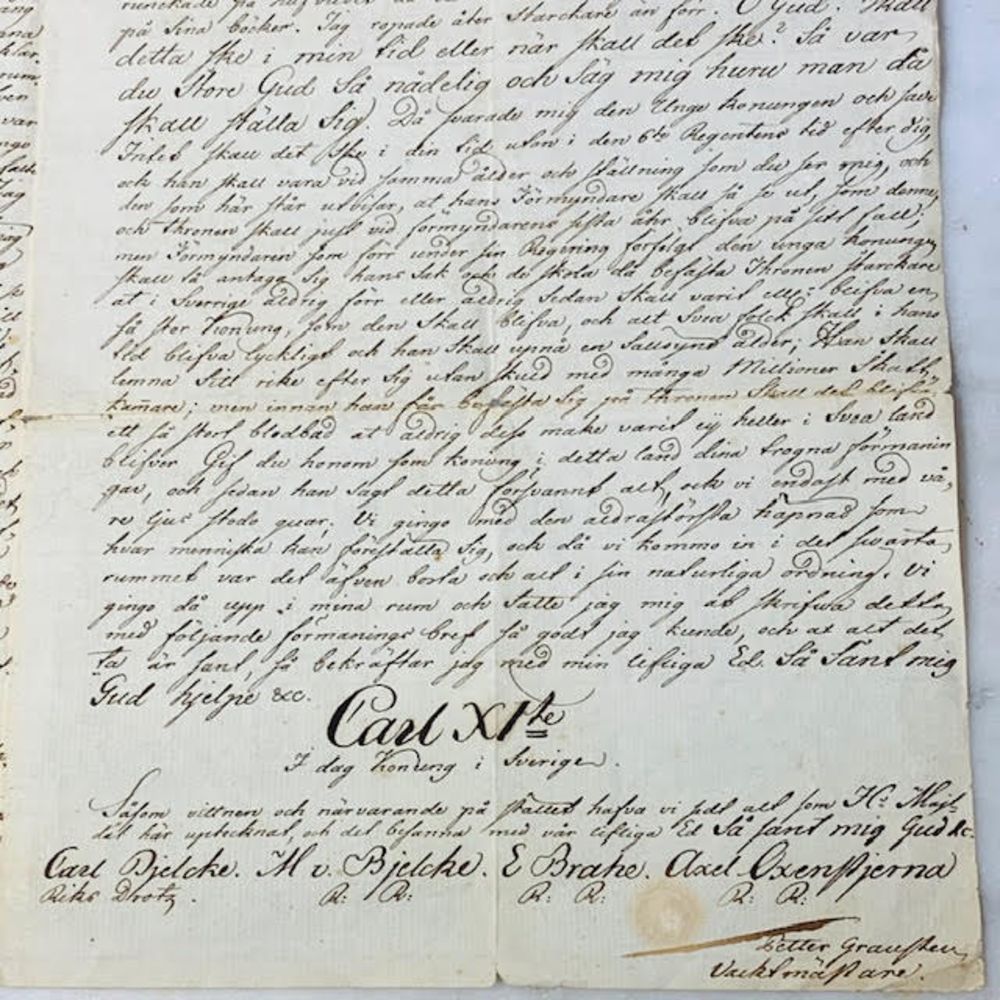 på sina böcker. Jag ropade åter starckare än förr. O Gud. Skall
detta ske i min tid eller när skall det ske? Så var
du store Gud så nådelig och säg mig huru man då
skall ställa sig). Då svarade mig den Unge konungen och sade
Intet skall det ske i din tid utan i den 6te Regentens tid efter dig,
och han skall vara vid samma ålder och ställning som du ser mig, och
den som här står utvisar, at hans Förmyndare skall så se ut, som denne,
och thronen skall just vid förmyndarens sista åhr blifva på sitt fall;
men Förmyndaren som förr under sin Regering förfölgt den unga konungen
skall så antaga sig hans sak och de skola då befästa Thronen starckare
at i Sverrige aldrig förr eller aldrig sedan skall varit ell: blifva en
så stor Konung, som den skall blifva, och alt Svea folck skall i hans
tid blifva lyckligt och han skall upnå en sällsynt ålder; Han skall
lemna sitt rike efter sig utan skuld med många Millioner Skatt
kamare; men innan han får befästa sig på thronen skall det blifva
ett så stort blodbad at aldrig dess make varit ej heller i Svea land
blifver Gif du honom som konung i detta land dina trogna förmanin
gar, och sedan han sagt detta försvannt alt, och vi endast med vå,
re ljus stodo quar; Vi gingo med den aldrastörsta häpnad som
hvar menniska kan föreställa sig, och då vi kommo in i det swarta
rummet var det äfven borta och alt i sin naturliga ordning. Vi
gingo då upp i mina rum och satte jag mig at skrifwa detta
med följande förmanings bref så godt jag kunde, och at alt det
ta är sant, så bekräftar jag med min lifliga Ed. Så Sant mig
Gud hjelpe &c.
Carl XIte
I dag Konung i Sverige.
Såsom vittnen och närvarande på stället hafva vi sedt alt som Hs Majt
tät här uptecknat, och det besanna med vår lifliga Ed Så sant mig Gud &c.
Carl Bjelcke. H v. Bjelcke. E Brahe. Axel Oxenstjerna
Riks Drotz. R: R: R: R: R: R:
Petter Graufsten
Vacktmästare.